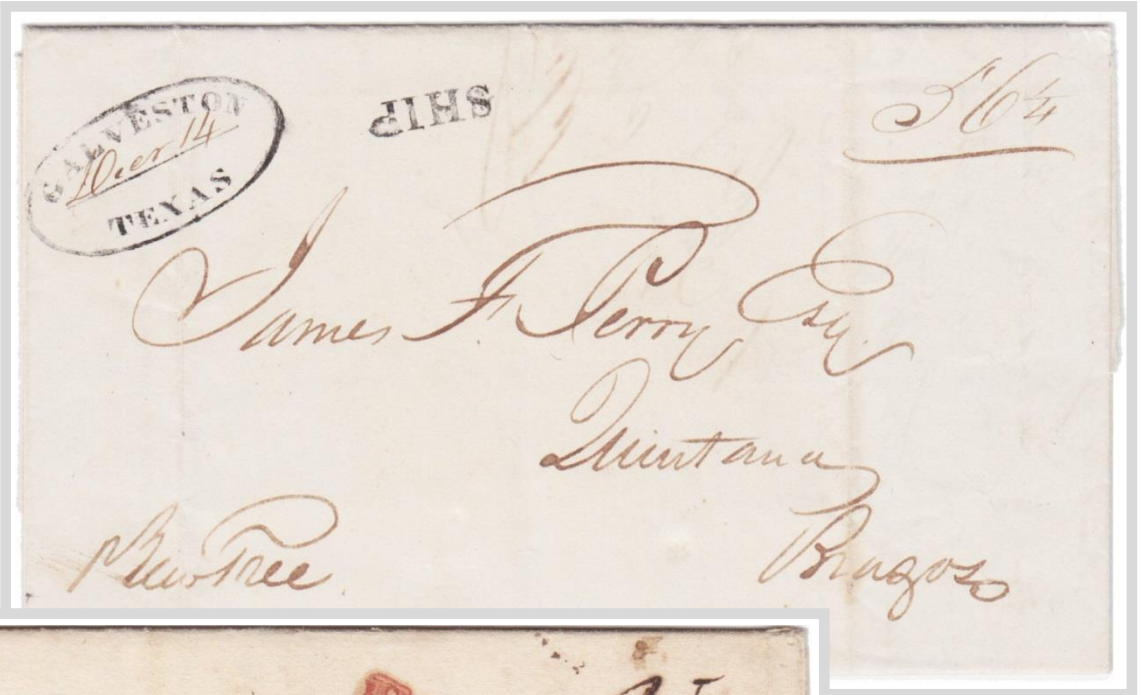 GALVESTON
Decr 14
TEXAS
SHIP
56¼
James F. Perry Esq.
Quintana
Brazos